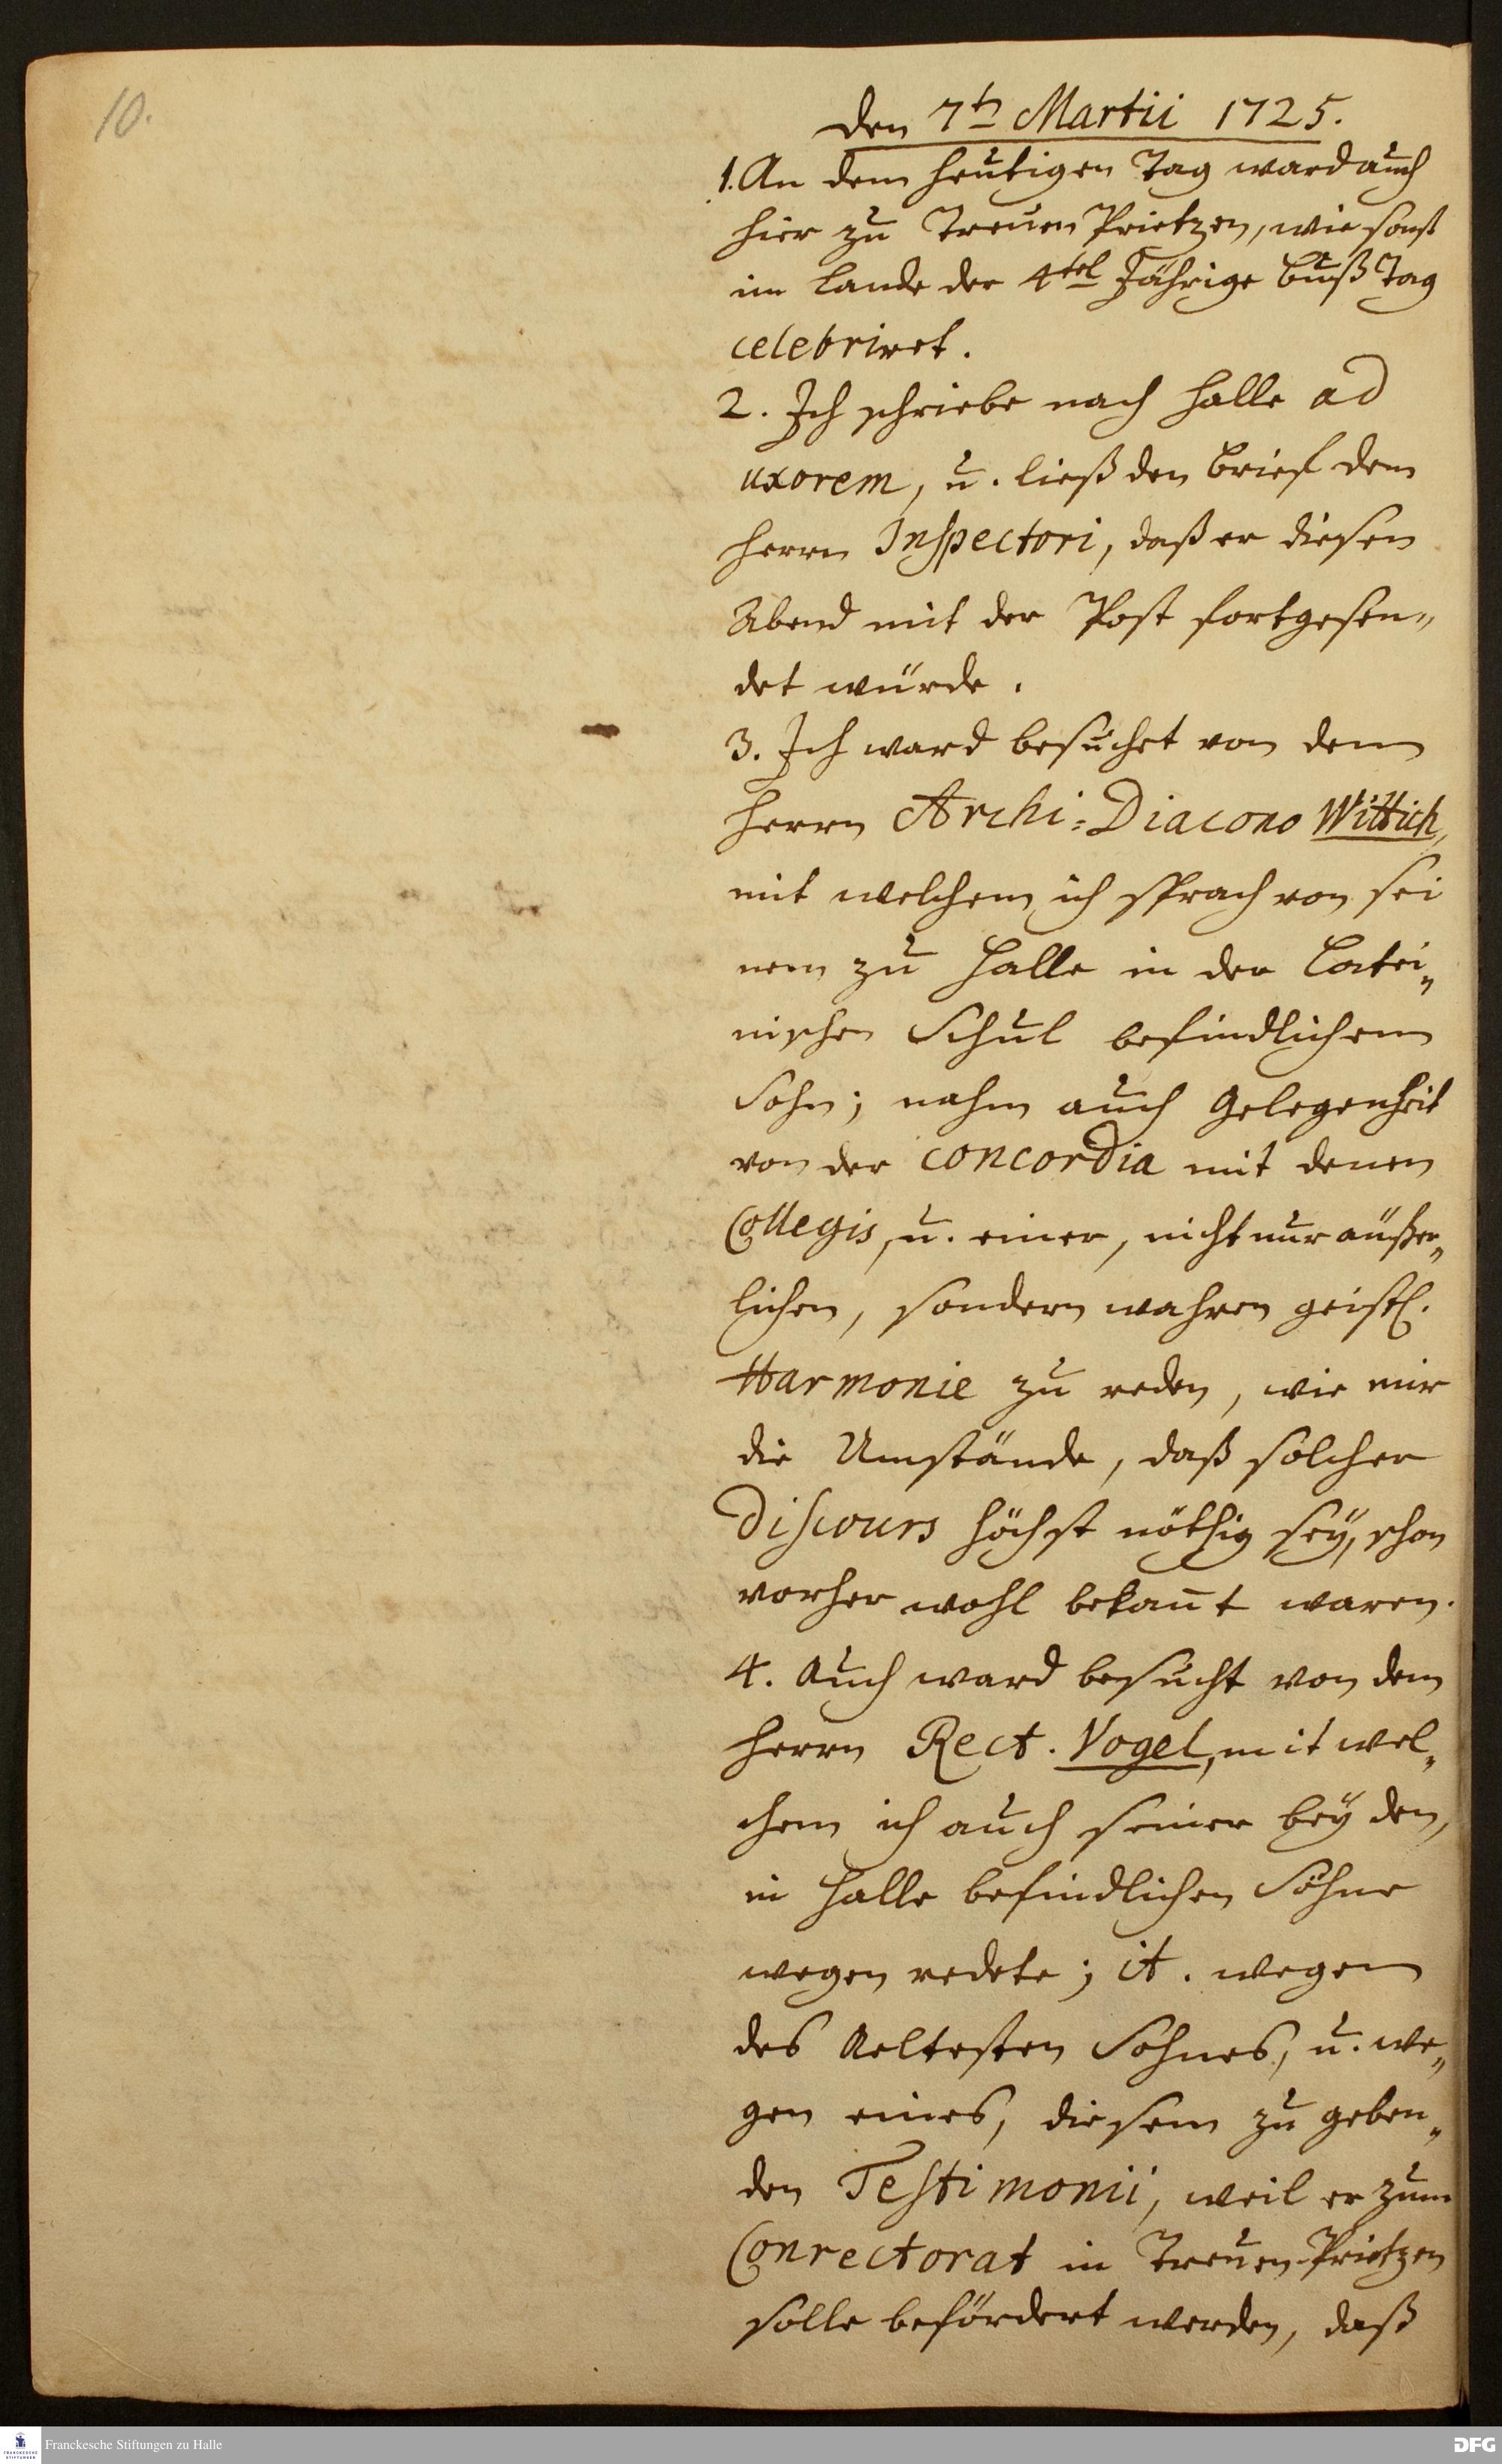 10.
den 7t̲e̲n̲ Martii 1725.
1. An dem heutigen Tag ward auch
hier zu Treuen Prietzen, wie sonst
im Lande der 4tel Jährige Buß Tag
celebriret.
2. Ich schriebe nach Halle ad
uxorem, u. ließ den Brief dem
Herrn Inspectori, daß er diesen
Abend mit der Post fortgesen„
det würde.
3. Ich ward besuchet von dem
Herrn Archi-Diacono Wittich,
mit welchem ich sprach von sei
nem zu Halle in der Latei„
nischen Schul befindlichem
Sohn; nahm auch Gelegenheit
von der concordia mit denen
Collegis, u. einer, nicht nur äußer„
lichen, sondern wahren geistl.
Harmonie zu reden, wie mir
die Umstände, daß solcher
Discours höchst nöthig seÿ, schon
vorher wohl bekañt waren.
4. Auch ward besucht von dem
Herrn Rect. Vogel, mit wel„
chem ich auch seiner beÿden,
in Halle befindlichen Söhne
wegen redete; it. wegen
des Aeltesten Sohnes, u. we„
gen eines, diesem zu geben„
den Testimonii, weil er zum
Conrectorat in Treuen-Prietzen
solle befördert werden, daß
Franckesche Stiftungen zu Halle
DFG